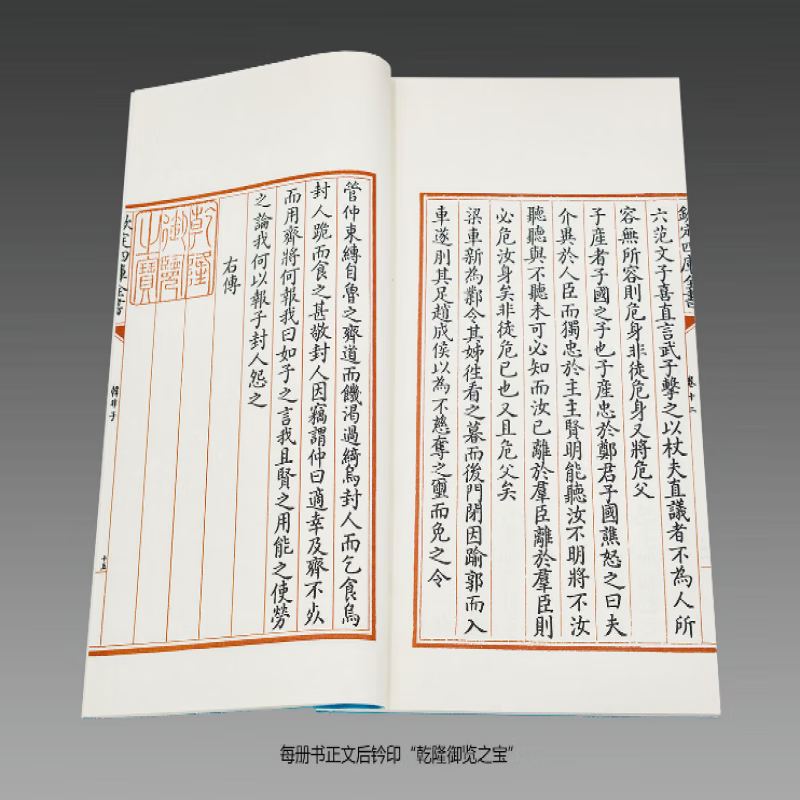 欽定四庫全書
卷十二
六范文子喜直言武子擊之以杖夫直議者不為人所
容無所容則危身非徒危身又將危父
子産者子國之子也子産忠於鄭君子國譙怒之曰夫
介異於人臣而獨忠於主主賢明能聽汝不明將不汝
聽聽與不聽未可必知而汝已離於羣臣離於羣臣則
必危汝身矣非徒危已也又且危父矣
梁車新為鄴令其姊徃看之暮而後門閉因踰郭而入
車遂刖其足趙成侯以為不慈奪之璽而免之令
管仲束縛自魯之齊道而饑渴過綺烏封人而乞食烏
封人跪而食之甚敬封人因竊謂仲曰適幸及齊不死
而用齊將何報我曰如子之言我且賢之用能之使勞
之論我何以報子封人怨之
右傳
乾隆
御覽
之寶
欽定四庫全書
韓非子
十五
每册书正文后钤印“乾隆御览之宝”